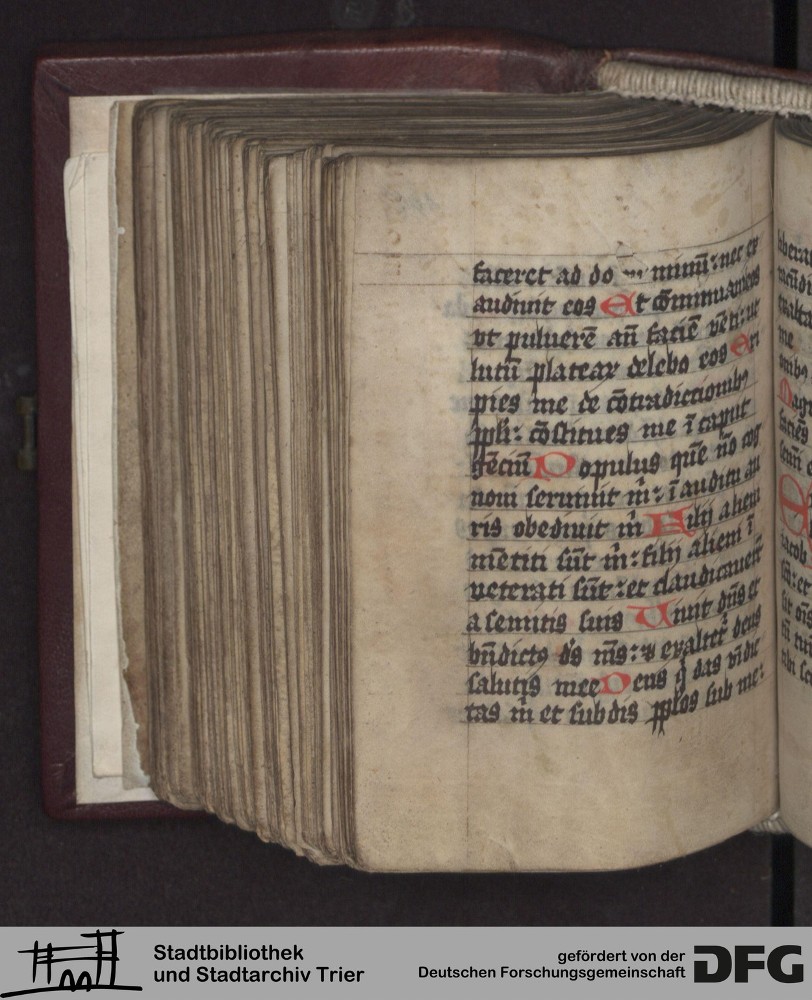 faceret ad do minū: nec ex
audiuit eos Et cōminuam eos
vt puluerē an̄ faciē vēti: ut
lutū plateaꝝ delebo eos Eri
pies me de cōtradictionibꝫ
ppli: cōstitues me ī caput
gēciū Populus quē nō cog
noui seruiuit m̄: ī auditu au
ris obediuit m̄ Filij alieni
mētiti sūt m̄: filij alieni ī
veterati sūt: et claudicauerūt
a semitis suis Uiuit dn̄s et
bn̄dictꝰ ds̄ ms̄: ⁊ exaltet᷑ deus
salutis mee Deus q̇ das vīdic
tas m̄ et subdis pplos sub me:
Stadtbibliothek
und Stadtarchiv Trier
gefördert von der
Deutschen Forschungsgemeinschaft
DFG